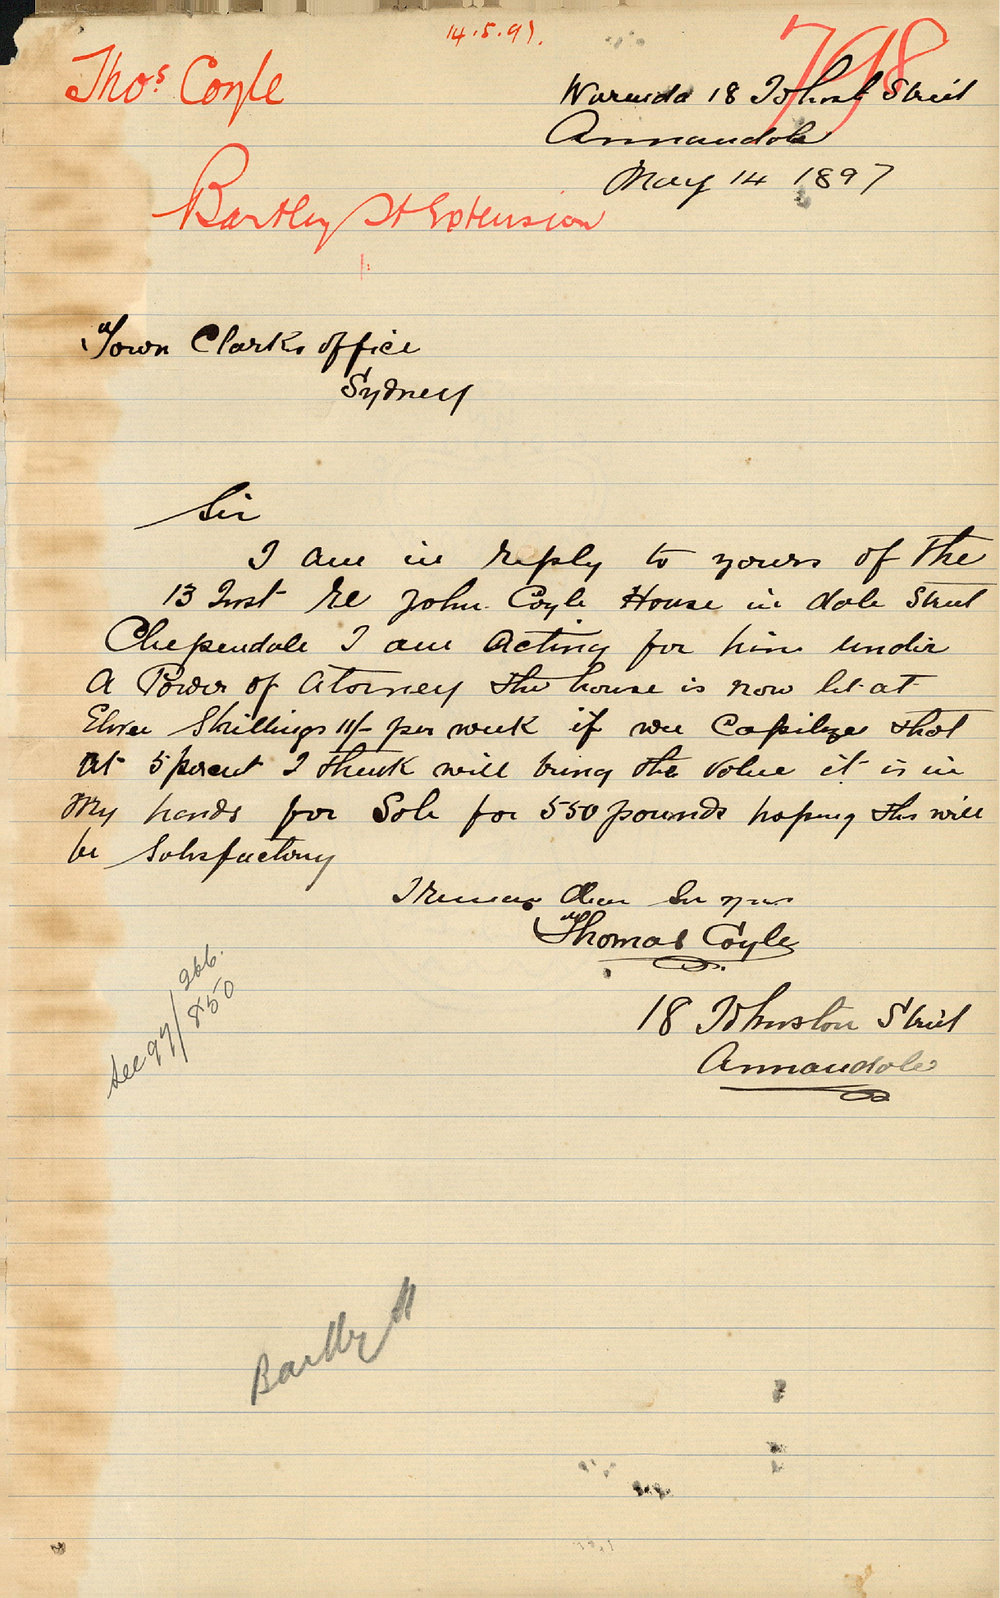 14.5.97.
798
Thos Coyle
Warenda 18 Johnst Street
Annandale
May 14 1897
Bartley St Extension
Town Clarks office
Sydney
Sir
I am in reply to yours of the
13 Inst Re John Coyle House in dale Street
Chependale I am Acting for him under
A Power of Atorney the house is now let at
Elven Shillings 11/- per week if we Capilize that
At 5 percent I think will bring the Value it is in
My hands for Sale for 550 pounds hoping this will
be Satisfactory
I remain Dear Sir yours
Thomas Coyle
18 Johnston Street
Annandale
See 97/266.
850
Bartley St